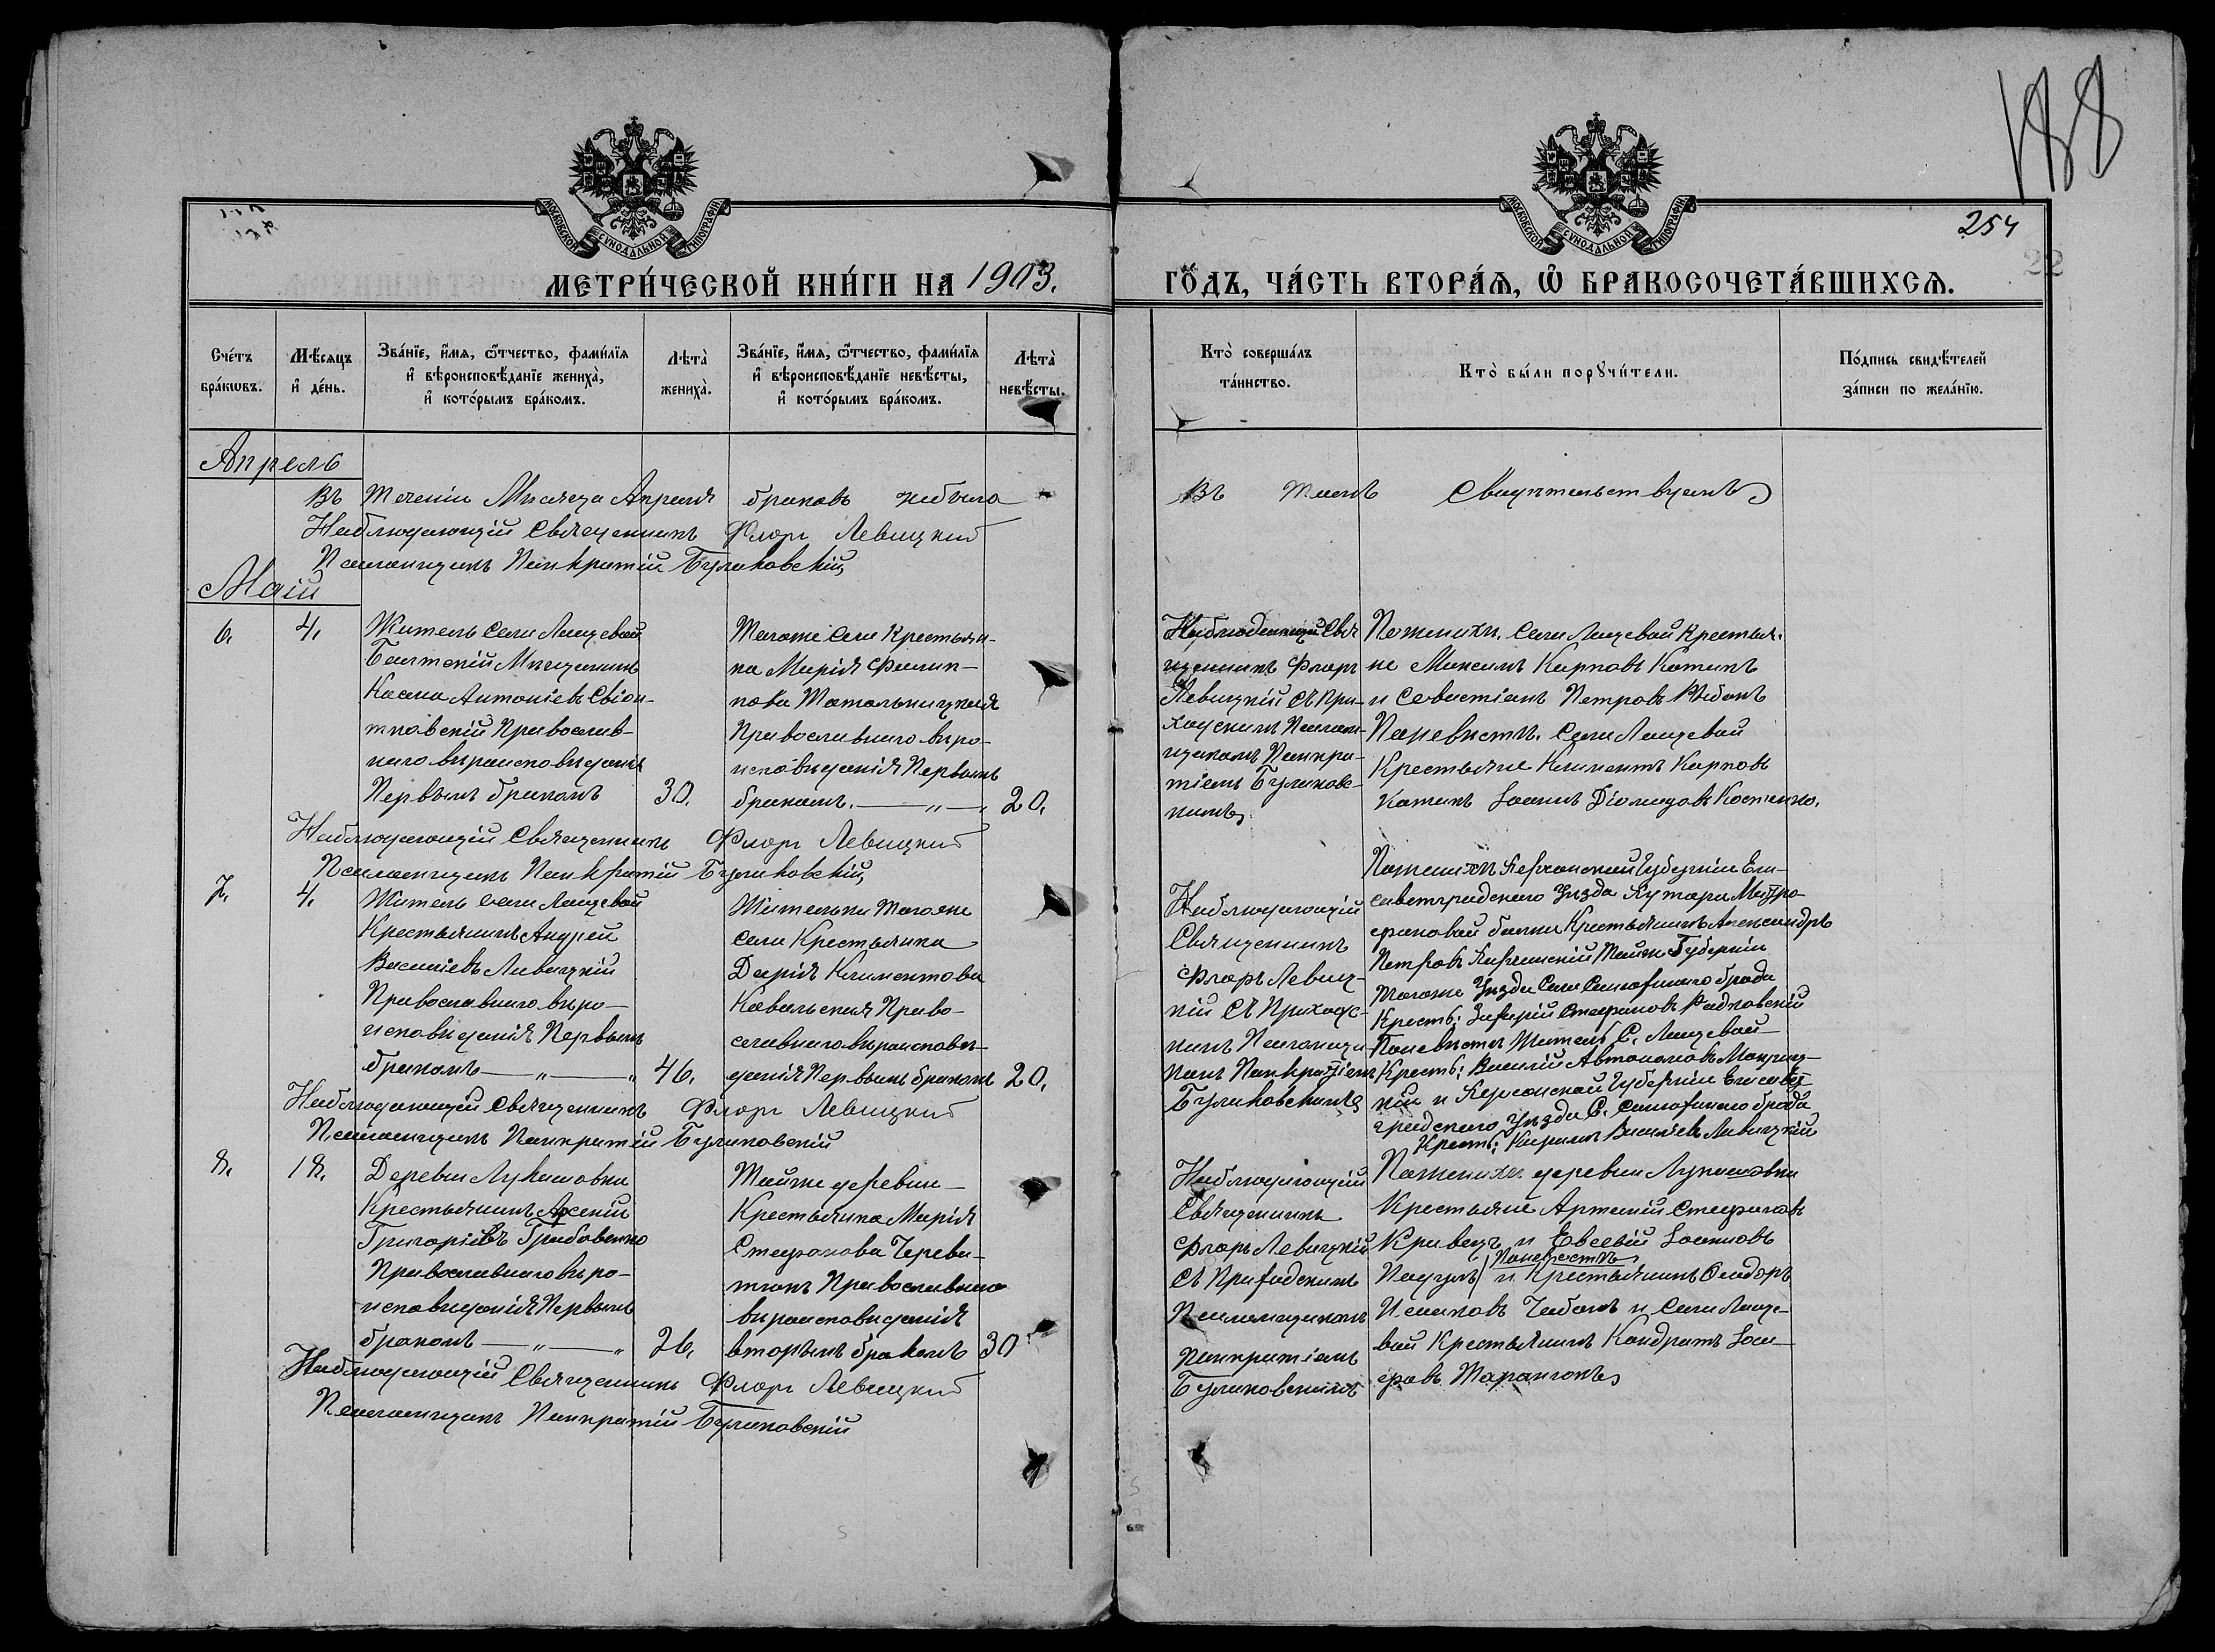 188
254
МОСКОВСКОЙ СѴНОДАЛЬНОЙ ТИПОГРАФІИ
МОСКОВСКОЙ СѴНОДАЛЬНОЙ ТИПОГРАФІИ
МЕТРИ́ЧЕСКОЙ КНИ́ГИ НА 1903.
ГО́ДЪ, ЧА́СТЬ ВТОРА́Я, Ѡ БРАКОСОЧЕТА́ВШИХСЯ.
22
Сче́тъ
бра́кѡвъ.
Мѣ́сяцъ
и҆ де́нь.
Зва́нїе, и҆́мя, ѻ҆́тчество, фами́лїя
и҆ вѣроисповѣ́данїе жениха̀,
и҆ кото́рымъ бра́комъ.
Лѣта̀
жениха̀.
Зва́нїе, и҆́мя, ѻ҆́тчество, фами́лїя
и҆ вѣроисповѣ́данїе невѣ́сты,
и҆ кото́рымъ бра́комъ.
Лѣта̀
невѣ́сты.
Кто̀ соверша́лъ
та́инство.
Кто̀ бы́ли порꙋчи́тели.
По́дпись свидѣ́телей
за́писи по жела́нїю.
Апрель
Въ течении Месяца Апреля браковъ небыло
Въ томъ Свидѣтельствуемъ
Наблюдающій Священникъ Флоръ Левицкій
Псаломщикъ Панкратій Буликовскій
Маій
6. 4.
Житель села Лащевой
Балтскій Мѣщанинъ
Косма Антоніевъ Свіон-
тковскій Православ-
наго вѣроисповѣданія
Первымъ бракомъ 30.
Тогоже села Крестьян-
ка Марія Филип-
пова Тотальницкая
Православнаго вѣро-
исповѣданія Первымъ
бракомъ. — „ — 20.
Наблюдающій Свя
щенникъ Флоръ
Левицкій съ При-
ходскимъ Псалом-
щикомъ Панкра-
тіемъ Буликовс-
кимъ
Поженихѣ. Села Лащевой Крестья-
не Максимъ Карповъ Котикъ
и Севастіанъ Петровъ Рыбакъ
Поневѣстѣ. Села Лащевой
Крестьяне Климентъ Карповъ
Котикъ Іоаннъ Діомидовъ Костенко.
Наблюдающій Священникъ Флоръ Левицкій
Псаломщикъ Панкратій Буликовскій
7. 4.
Житель села Лащевой
Крестьянинъ Андрей
Василіевъ Ливицкій
Православнаго вѣро-
исповѣданія Первымъ
бракомъ — „ — „ 46.
Жительки тогоже
села Крестьянка
Дарія Климентова
Ковальская Право-
славнаго вѣроисповѣ-
данія Первымъ бракомъ 20.
Наблюдающій
Священникъ
Флоръ Левиц-
кій съ Приходс-
кимъ Псаломщи-
комъ Панкратіемъ
Буликовскимъ
Поженихѣ Херсонской Губерніи Ели-
саветградскаго Уѣзда Хутора Митро-
фановой балки Крестьянинъ Александръ
Петровъ Тойже Губерніи
Тогоже Уѣзда Села брода
Крестъ: Захарій Стефановъ Радковскій
Поневѣстѣ Житель С. Лащевой
Крестъ: Василій Автономовъ
кій и Херсонской Губерніи Елисавет
градскаго Уѣзда С. брода
Крестъ: Кирилъ Василіевъ Ливицкій
Наблюдающій Священникъ Флоръ Левицкій
Псаломщикъ Панкратій Буликовскій
8. 18.
Деревни Лукашовки
Крестьянинъ Арсеній
Григоріевъ Грабовенко
Православнаго вѣро-
исповѣданія Первымъ
бракомъ — „ — „ 26.
Тойже деревни —
Крестьянка Марія
Стефанова Череви-
тюкъ Православнаго
вѣроисповѣданія
вторымъ бракомъ 30
Наблюдающій
Священникъ
Флоръ Левицкій
съ Приходскимъ
Псаломщикомъ
Панкратіемъ
Буликовскимъ
Поженихѣ. деревни Лукашовки
Крестьяне Артемій Стефановъ
Кривецъ и Евсевій Іоанновъ
Поневѣстѣ
и Крестьянинъ Ѳеодоръ
Исааковъ Чабанъ и села Лаще-
вой Крестьянинъ Кондратъ Іоси-
фовъ Таранюкъ
Наблюдающій Священникъ Флоръ Левицкій
Псаломщикъ Панкратій Буликовскій